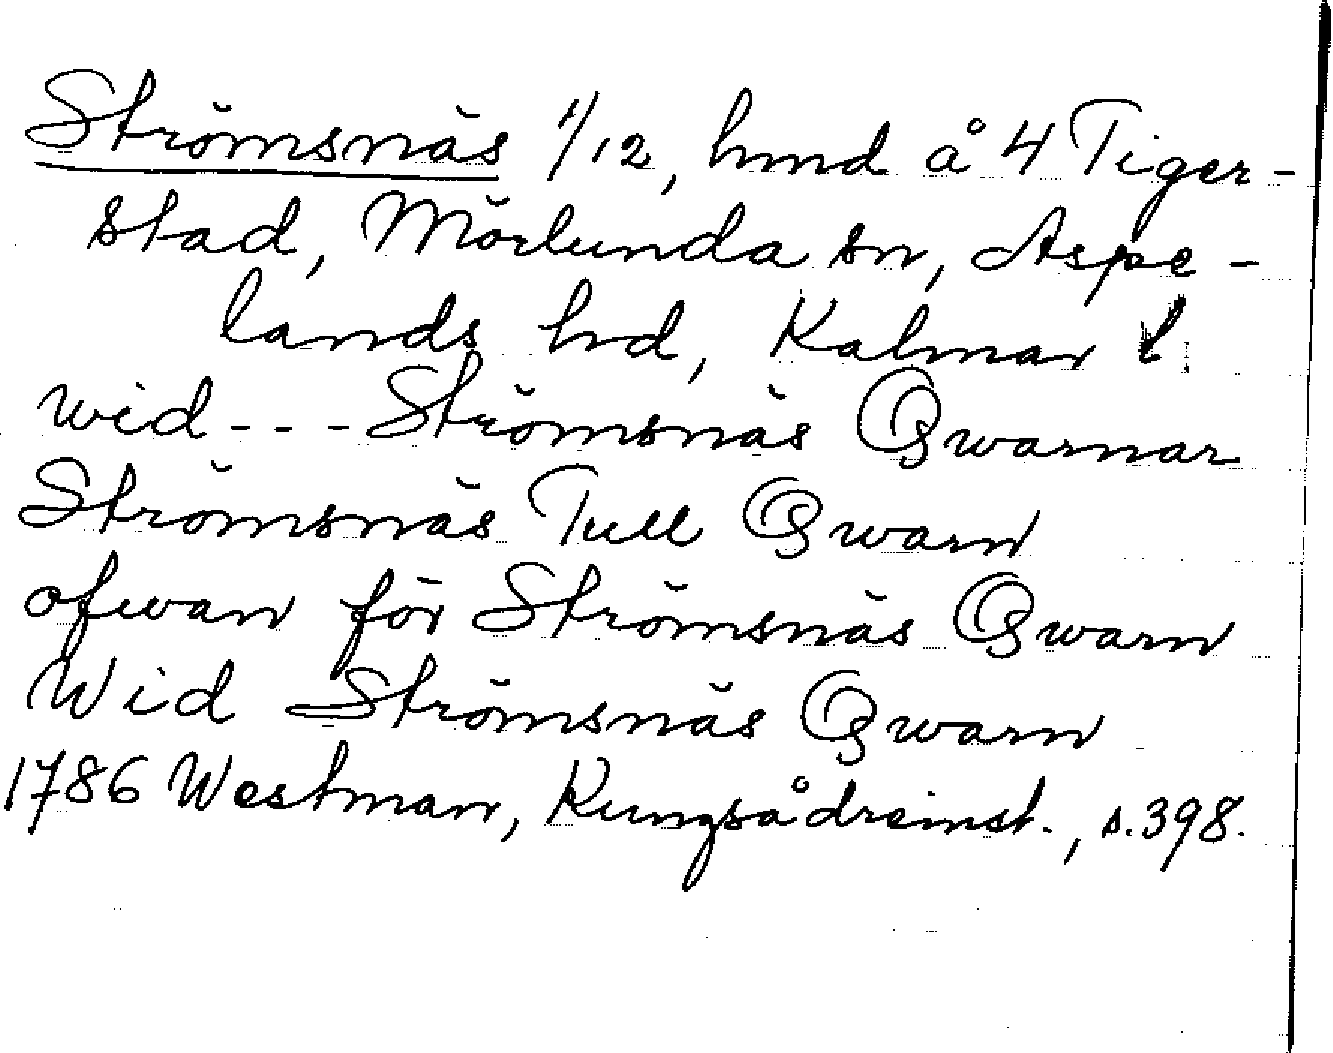 Strömsnäs 1/12, hmd å 4 Tiger-
stad, Mörlunda sn, Aspe-
lands hd, Kalmar l.
wid --- Strömsnäs Qwarnar
Strömsnäs Tull Qwarn
ofwan för Strömsnäs Qwarn
Wid Strömsnäs Qwarn
1786 Westman, Kungsådreinst., s. 398.